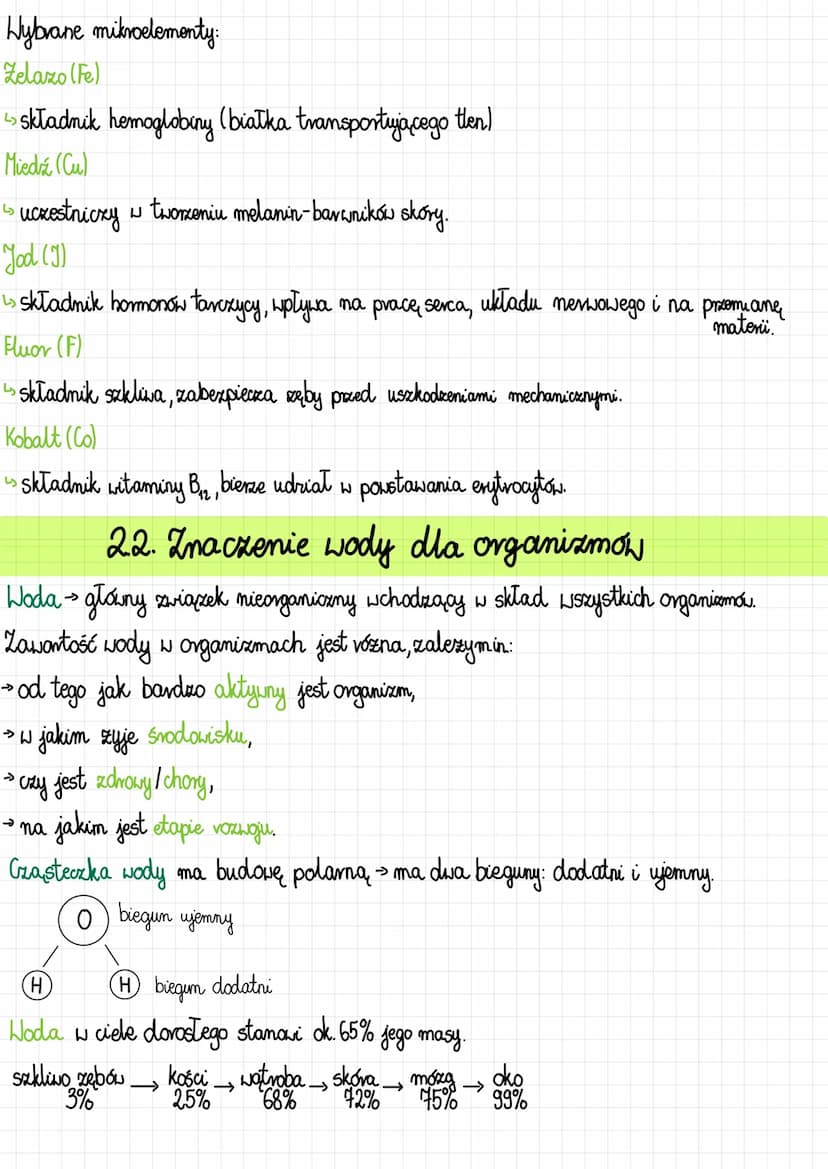 Wybrane mikroelementy:
Żelazo (Fe)
↳ składnik hemoglobiny (białka transportującego tlen)
Miedź (Cu)
↳ uczestniczy w tworzeniu melanin-barwników skóry.
Jod (J)
↳ składnik hormonów tarczycy, wpływa na pracę serca, układu nerwowego i na przemianę
materii.
Fluor (F)
↳ składnik szkliwa, zabezpiecza zęby przed uszkodzeniami mechanicznymi.
Kobalt (Co)
↳ składnik witaminy B₁₂, bierze udział w powstawania erytrocytów.
2.2. Znaczenie wody dla organizmów
Woda → główny związek nieorganiczny wchodzący w skład wszystkich organizmów.
Zawartość wody w organizmach jest różna, zależy m.in:
→ od tego jak bardzo aktywny jest organizm,
→ w jakim żyje środowisku,
→ czy jest zdrowy/chory,
→ na jakim jest etapie rozwoju.
Cząsteczka wody ma budowę polarną → ma dwa bieguny: dodatni i ujemny.
O biegun ujemny
H H biegun dodatni
Woda w ciele dorosłego stanowi ok. 65% jego masy.
szkliwo zębów → kości → wątroba → skóra → mózg → oko
3% 25% 68% 72% 75% 99%